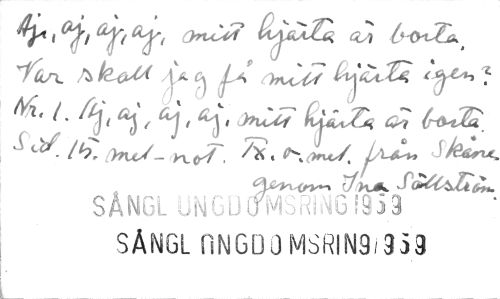 Aj, aj, aj, aj, mitt hjärta är borta.
Var skall jag få mitt hjärta igen?
Nr. 1. Aj, aj, aj, aj, mitt hjärta är borta.
Sid. 15. mel-not. Tx. o. mel. från Skåne
genom Ina Sällström.
SÅNGL UNGDOMSRING 1959
SÅNGL UNGDOMSRING 1959